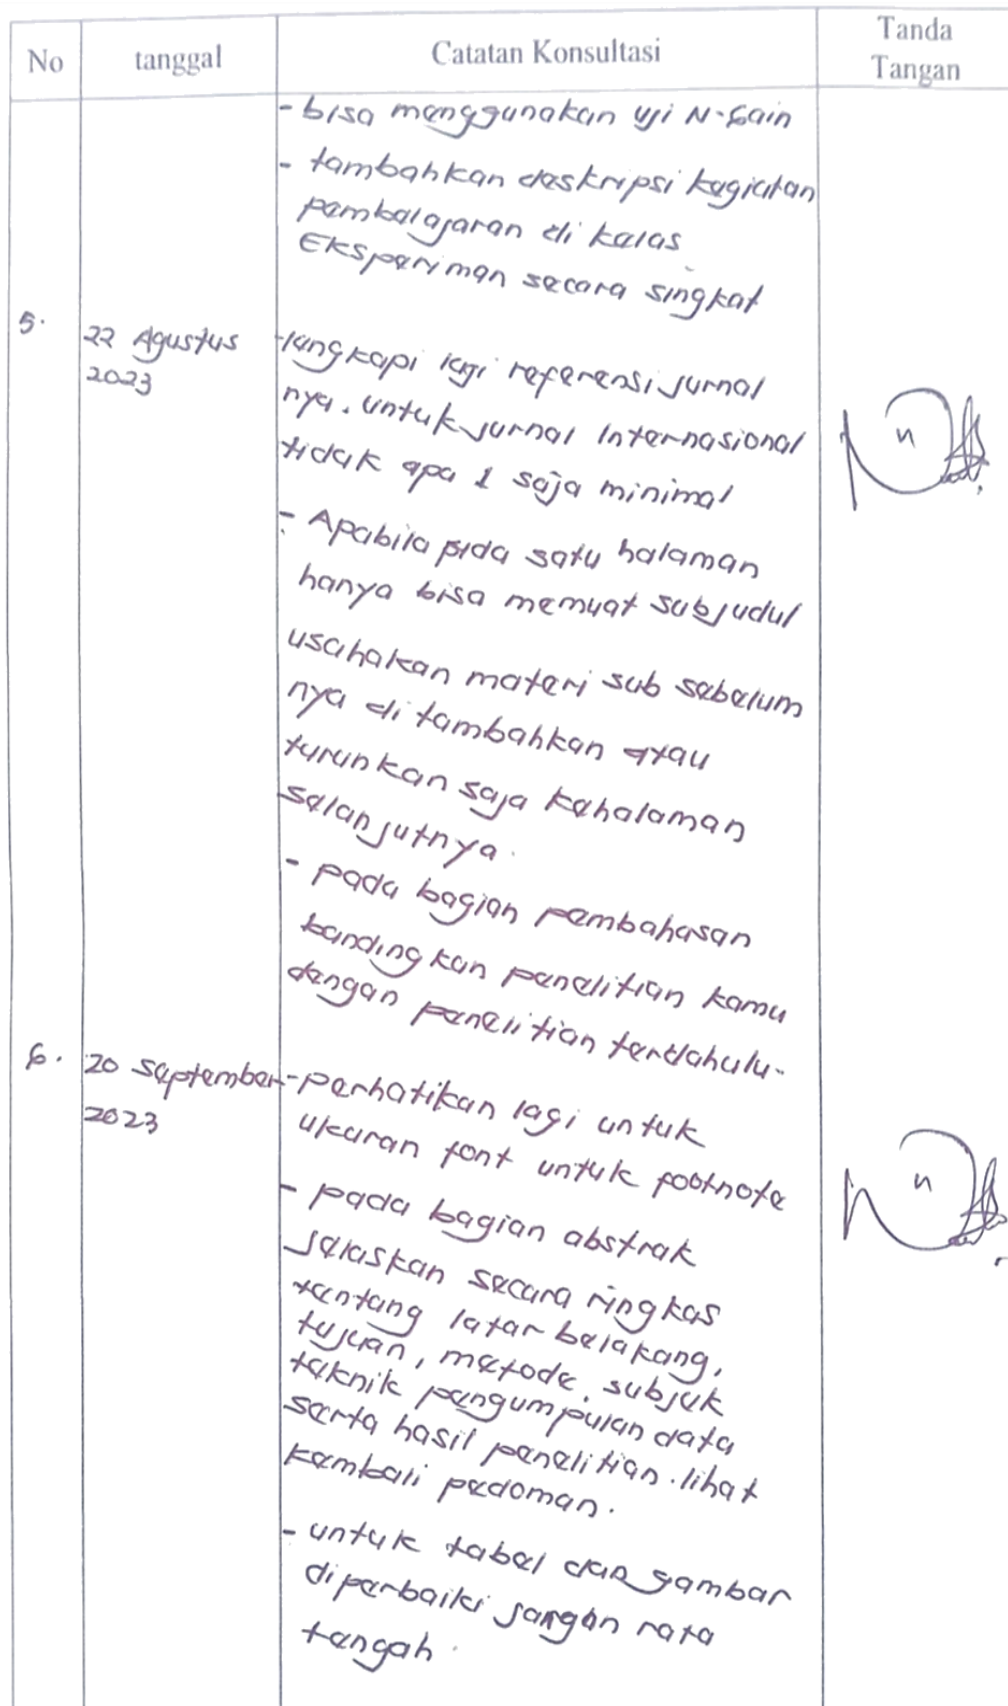 No tanggal Catatan Konsultasi Tanda Tangan
- bisa menggunakan uji N-Gain
- tambahkan deskripsi kegiatan
pembelajaran di kelas
Eksperimen secara singkat
5. 22 Agustus 2023
- lengkapi lagi referensi jurnal
nya. untuk jurnal Internasional
tidak apa 1 saja minimal
- Apabila pada satu halaman
hanya bisa memuat subjudul
usahakan materi sub sebelum
nya di tambahkan atau
turunkan saja kehalaman
selanjutnya.
- pada bagian pembahasan
bandingkan penelitian kamu
dengan penelitian terdahulu.
6. 20 September 2023
- perhatikan lagi untuk
ukuran font untuk footnote
- pada bagian abstrak
jelaskan secara ringkas
tentang latar belakang,
tujuan, metode, subjek
teknik pengumpulan data
serta hasil penelitian. lihat
kembali pedoman.
- untuk tabel dan gambar
diperbaiki jangan rata
tengah.